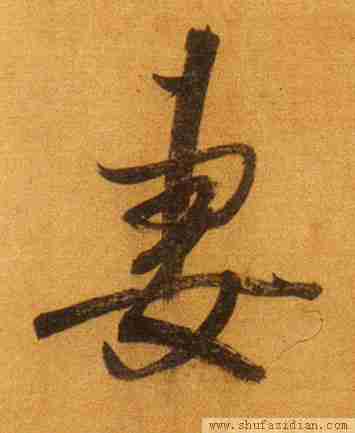 妻
www.shufazidian.com